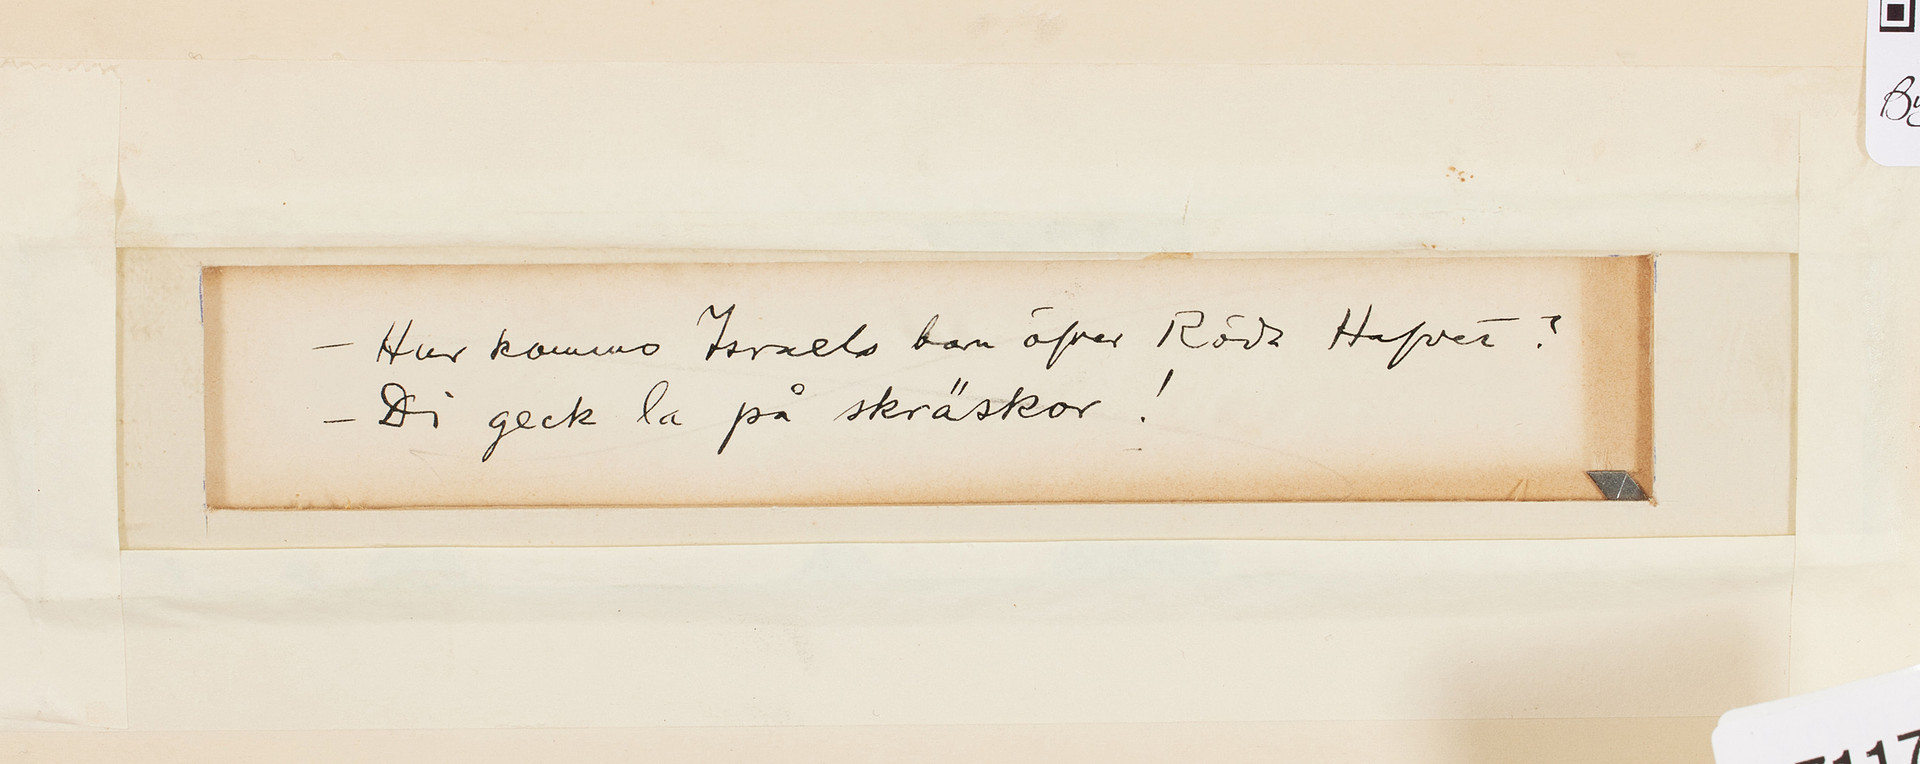 – Hur kommo Israels barn öfver Röda Hafvet ?
– Di geck la på skräskor !
By
7117